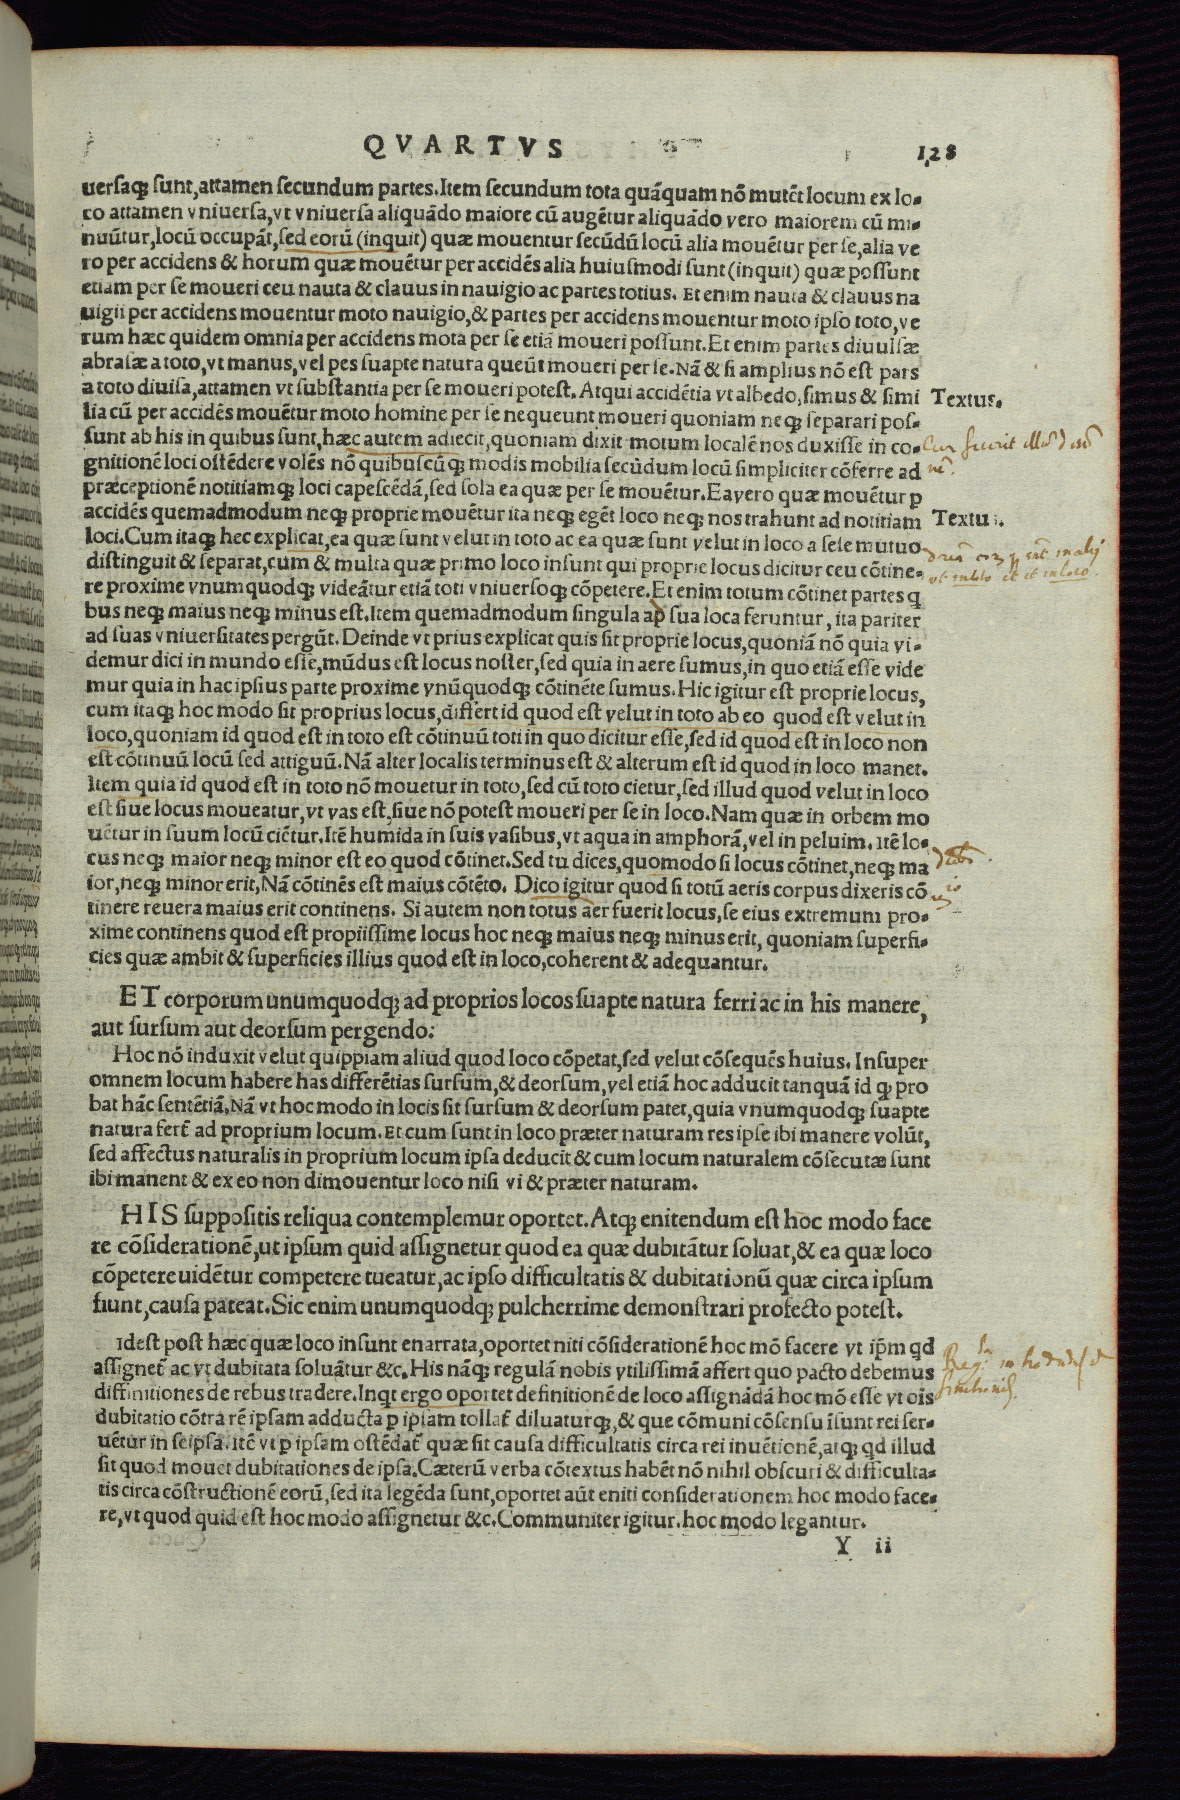 QVARTVS 128
uersaqꝫ sunt,attamen secundum partes.Item secundum tota quāquam nō mutēt locum ex lo-
co attamen vniuersa,vt vniuersa aliquādo maiore cū augētur aliquādo vero maiorem cū mi-
nuūtur,locū occupāt,sed eorū (inquit) quæ mouentur secūdū locū alia mouētur per se,alia ve
ro per accidens & horum quæ mouētur per accidēs alia huiusmodi sunt (inquit) quæ possunt
etiam per se moueri ceu nauta & clauus in nauigio ac partes totius. Et enim nauta & clauus na
uigii per accidens mouentur moto nauigio,& partes per accidens mouentur moto ipso toto,ve
rum hæc quidem omnia per accidens mota per se etiā moueri possunt.Et enim partes diuulsæ
abrasæ a toto,vt manus,vel pes suapte natura queūt moueri per se.Nā & si amplius nō est pars
a toto diuisa,attamen vt substantia per se moueri potest.Atqui accidētia vt albedo,simus & simi
Textus.
lia cū per accidēs mouētur moto homine per se nequeunt moueri quoniam neqꝫ separari pos-
sunt ab his in quibus sunt,hæc autem adiecit,quoniam dixit motum localē nos duxisse in co-
gnitionē loci ostēdere volēs nō quibuscūqꝫ modis mobilia secūdum locū simpliciter cōferre ad
præceptionē notitiamqꝫ loci capescēdā,sed sola ea quæ per se mouētur.Ea vero quæ mouētur ꝑ
accidēs quemadmodum neqꝫ proprie mouētur ita neqꝫ egēt loco neqꝫ nos trahunt ad notitiam
Textus.
loci.Cum itaqꝫ hec explicat,ea quæ sunt velut in toto ac ea quæ sunt velut in loco a sese mutuo
distinguit & separat,cum & multa quæ primo loco insunt qui proprie locus dicitur ceu cōtine-
re proxime vnumquodqꝫ videātur etiā toti vniuersoqꝫ cōpetere.Et enim totum cōtinet partes q
bus neqꝫ maius neqꝫ minus est.Item quemadmodum singula ap sua loca feruntur, ita pariter
ad suas vniuersitates pergūt. Deinde vt prius explicat quis sit proprie locus,quoniā nō quia vi-
demur dici in mundo esse,mūdus est locus noster,sed quia in aere sumus,in quo etiā esse vide
mur quia in hac ipsius parte proxime vnūquodqꝫ cōtinēte sumus.Hic igitur est proprie locus,
cum itaqꝫ hoc modo sit proprius locus,differt id quod est velut in toto ab eo quod est velut in
loco,quoniam id quod est in toto est cōtinuū toti in quo dicitur esse,sed id quod est in loco non
est cōtinuū locū sed attiguū.Nā alter localis terminus est & alterum est id quod in loco manet.
Item quia id quod est in toto nō mouetur in toto,sed cū toto cietur,sed illud quod velut in loco
est siue locus moueatur,vt vas est,siue nō potest moueri per se in loco.Nam quæ in orbem mo
uētur in suum locū ciētur.Itē humida in suis vasibus,vt aqua in amphorā,vel in peluim. itē lo-
cus neqꝫ maior neqꝫ minor est eo quod cōtinet.Sed tu dices,quomodo si locus cōtinet,neqꝫ ma
ior,neqꝫ minor erit,Nā cōtinēs est maius cōtēto. Dico igitur quod si totū aeris corpus dixeris cō
tinere reuera maius erit continens. Si autem non totus aer fuerit locus,se eius extremum pro-
xime continens quod est propiissime locus hoc neqꝫ maius neqꝫ minus erit, quoniam superfi-
cies quæ ambit & superficies illius quod est in loco,coherent & adequantur.
ET corporum unumquodqꝫ ad proprios locos suapte natura ferri ac in his manere,
aut sursum aut deorsum pergendo:
Hoc nō induxit velut quippiam aliud quod loco cōpetat,sed velut cōsequēs huius. Insuper
omnem locum habere has differētias sursum,& deorsum,vel etiā hoc adducit tanquā id qꝫ pro
bat hāc sentētiā.Nā vt hoc modo in locis sit sursum & deorsum patet,quia vnumquodqꝫ suapte
natura fert̄ ad proprium locum.Et cum sunt in loco præter naturam res ipse ibi manere volūt,
sed affectus naturalis in proprium locum ipsa deducit & cum locum naturalem cōsecutæ sunt
ibi manent & ex eo non dimouentur loco nisi vi & præter naturam.
HIS suppositis reliqua contemplemur oportet.Atqꝫ enitendum est hoc modo face
re cōsiderationē,ut ipsum quid assignetur quod ea quæ dubitātur soluat,& ea quæ loco
cōpetere uidētur competere tueatur,ac ipso difficultatis & dubitationū quæ circa ipsum
fiunt,causa pateat.Sic enim unumquodqꝫ pulcherrime demonstrari profecto potest.
Idest post hæc quæ loco insunt enarrata,oportet niti cōsiderationē hoc mō facere vt ip̄m qd
assignet̄ ac vt dubitata soluātur &c. His nāqꝫ regulā nobis vtilissimā affert quo pacto debemus
diffinitiones de rebus tradere.Inqt ergo oportet definitionē de loco assignādā hoc mō esse vt ois
dubitatio cōtra rē ipsam adducta ꝑ ipsam tollat̄ diluaturqꝫ,& que cōmuni cōsensu īsunt rei ser-
uētur in seipsa.itē vt ꝑ ipsam ostēdat̄ quæ sit causa difficultatis circa rei inuētionē,atqꝫ qd illud
sit quod mouet dubitationes de ipsa.Cæterū verba cōtextus habēt nō nihil obscuri & difficulta-
tis circa cōstructionē eorū,sed ita legēda sunt,oportet aūt eniti considerationem hoc modo face-
re,vt quod quid est hoc modo assignetur &c.Communiter igitur.hoc modo legantur.
Y ii